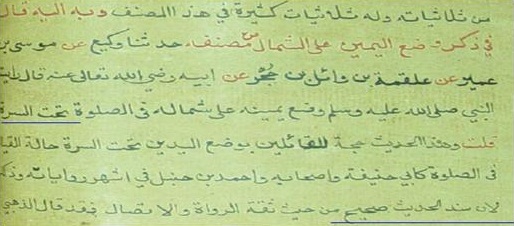 من ثلاثياته وله ثلاثيات كثيرة في هذا المصنف وبه اليه قال
في ذكر وضع اليمين على الشمال من مصنفه حدثنا وكيع عن موسى بن
عمير عن علقمة بن وائل بن حُجْر عن ابيه رضي الله تعالى عنه قال رايت
النبي صلى الله عليه وسلم وضع يمينه على شماله في الصلوة تحت السرة
قلت وهذا الحديث حجة للقائلين بوضع اليدين تحت السرة حالة القيا
في الصلوة كابي حنيفة واصحابه واحمد بن حنبل في اشهر رواياته وذك
لان سند الحديث صحيح من حيث ثقة الرواة والاتصال فقد قال الذهبي